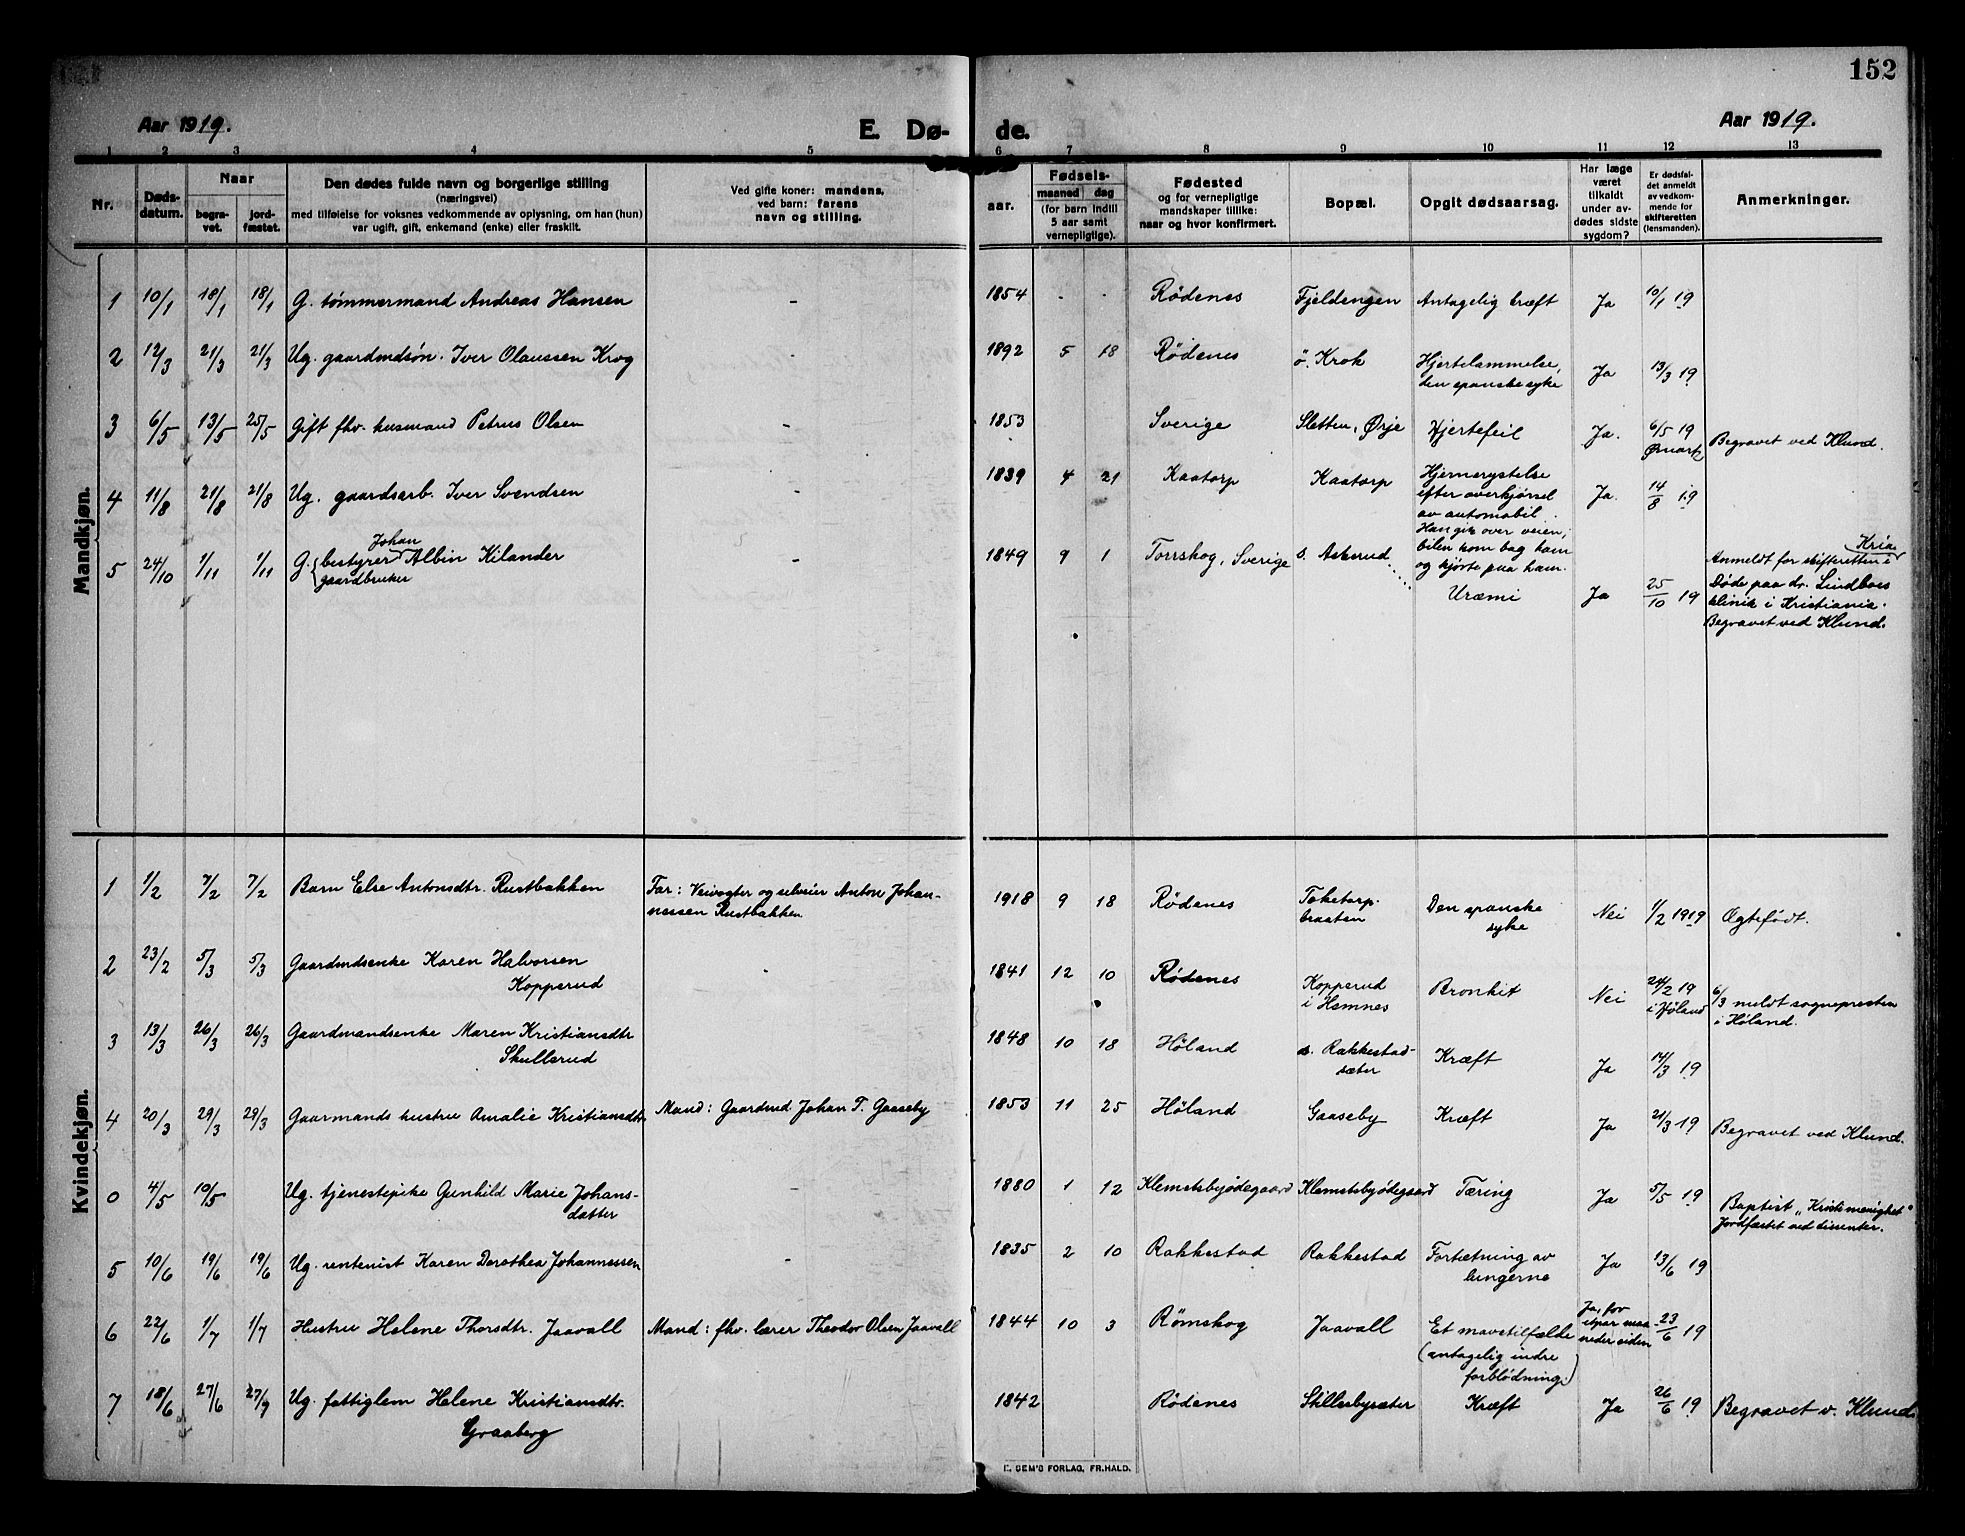 152
Aar 1919.
E. Dø-
de.
Aar 1919.
1 2 3 4 5 6 7 8 9 10 11 12 13
Nr.
Døds-
datum.
Naar
begra-
vet.
jord-
fæstet.
Den dødes fulde navn og borgerlige stilling
(næringsvei)
med tilføielse for voksnes vedkommende av oplysning, om han (hun)
var ugift, gift, enkemand (enke) eller fraskilt.
Ved gifte koner: mandens,
ved barn: farens
navn og stilling.
Fødsels-
aar.
maaned dag
(for børn indtil
5 aar samt
vernepligtige).
Fødested
og for vernepligtige
mandskaper tillike:
naar og hvor konfirmert.
Bopæl.
Opgit dødsaarsag.
Har læge
været
tilkaldt
under av-
dødes sidste
sygdom?
Er dødsfal-
det anmeldt
av vedkom-
mende for
skifteretten
(lensmanden).
Anmerkninger.
Mandkjøn.
1 10/1 18/1 18/1 G. tømmermand Andreas Hansen - 1854 - - Rødenes Fjeldengen Antagelig kræft Ja 10/1 19
2 12/3 21/3 21/3 Ug. gaardmdsøn. Iver Olaussen Krog - 1892 5 18 Rødenes ö. Krok Hjertelammelse,
den spanske syke Ja 13/3 19
3 6/5 13/5 25/5 Gift fhv. husmand Petrus Olsen - 1853 Sverige Sletten, Ørje Hjertefeil Ja. 6/5 19
Begravet ved Klund.
4 11/8 21/8 21/8 Ug. gaardsarb. Iver Svendsen - 1839 4 21 Kaatorp Kaatorp Hjernerystelse
efter overkjørsel
av automobil.
Han gik over veien;
bilen kom bag ham
og kjørte paa ham.
Ja. 14/8 19
5 24/10 1/11 1/11 G. bestyrer Johan Albin Kilander
gaardbruker
1849 9 1 Torrskog, Sverige s. Askerud
Uræmi Ja 25/10 19
Anmeldt for skifteretten i Kria
Døde paa dr. Lindboes
klinik i Kristiania.
Begravet ved Klund.
Kvindekjøn.
1 1/2 7/2 7/2 Barn Else Antonsdtr. Rustbakken Far: Veivogter og selveier Anton Johan-
nessen Rustbakken 1918 9 18 Rødenes Toketorp-
braaten Den spanske
syke Nei 1/2 1919 Ægtefødt.
2 23/2 5/3 5/3 Gaardmdsenke Karen Halvorsen
Kopperud - 1841 12 10 Rødenes Kopperud
i Hemnes Bronkit Nei 24/2 19
i Høland 6/3 meldt sognepresten
i Høland.
3 13/3 26/3 26/3 Gaardmandsenke Maren Kristiansdtr
Skullerud 1848 10 18 Høland s. Rakkestad-
sæter Kræft Ja 14/3 19
4 20/3 29/3 29/3 Gaarmands hustru Amalie Kristiansdtr Mand: Gaardmd Johan T. Gaaseby 1853 11 25 Høland Gaaseby Kræft Ja 21/3 19 Begravet ved Klund.
0 4/5 10/5 Ug. tjenestepike Gunhild Marie Johans-
datter - 1880 1 12 Klemetsbyødegaard Klemetsbyødegaard Tæring Ja 5/5 19 Baptist „Kristi menighet"
Jordfæstet ved dissenter.
5 10/6 19/6 19/6 Ug. rentenist Karen Dorothea Johannessen - 1835 2 10 Rakkestad Rakkestad Fortætning av
lungerne Ja 13/6 19
6 22/6 1/7 1/7 Hustru Helene Thorsdtr. Jaavall Mand: fhv. lærer Theodor Olsen Jaavall 1844 10 3 Rømskog Jaavall Et mavetilfælde
(antagelig indre
forblödning.) Ja, for
etpar maa-
neder siden 23/6 19
7 18/6 27/6 27/9 Ug. fattiglem Helene Kristiansdtr.
Graaberg 1842 Rødenes Stillesbysæter Kræft Ja 26/6 19 Begravet v. Klund.
E. SEM'S FORLAG, FR.HALD.